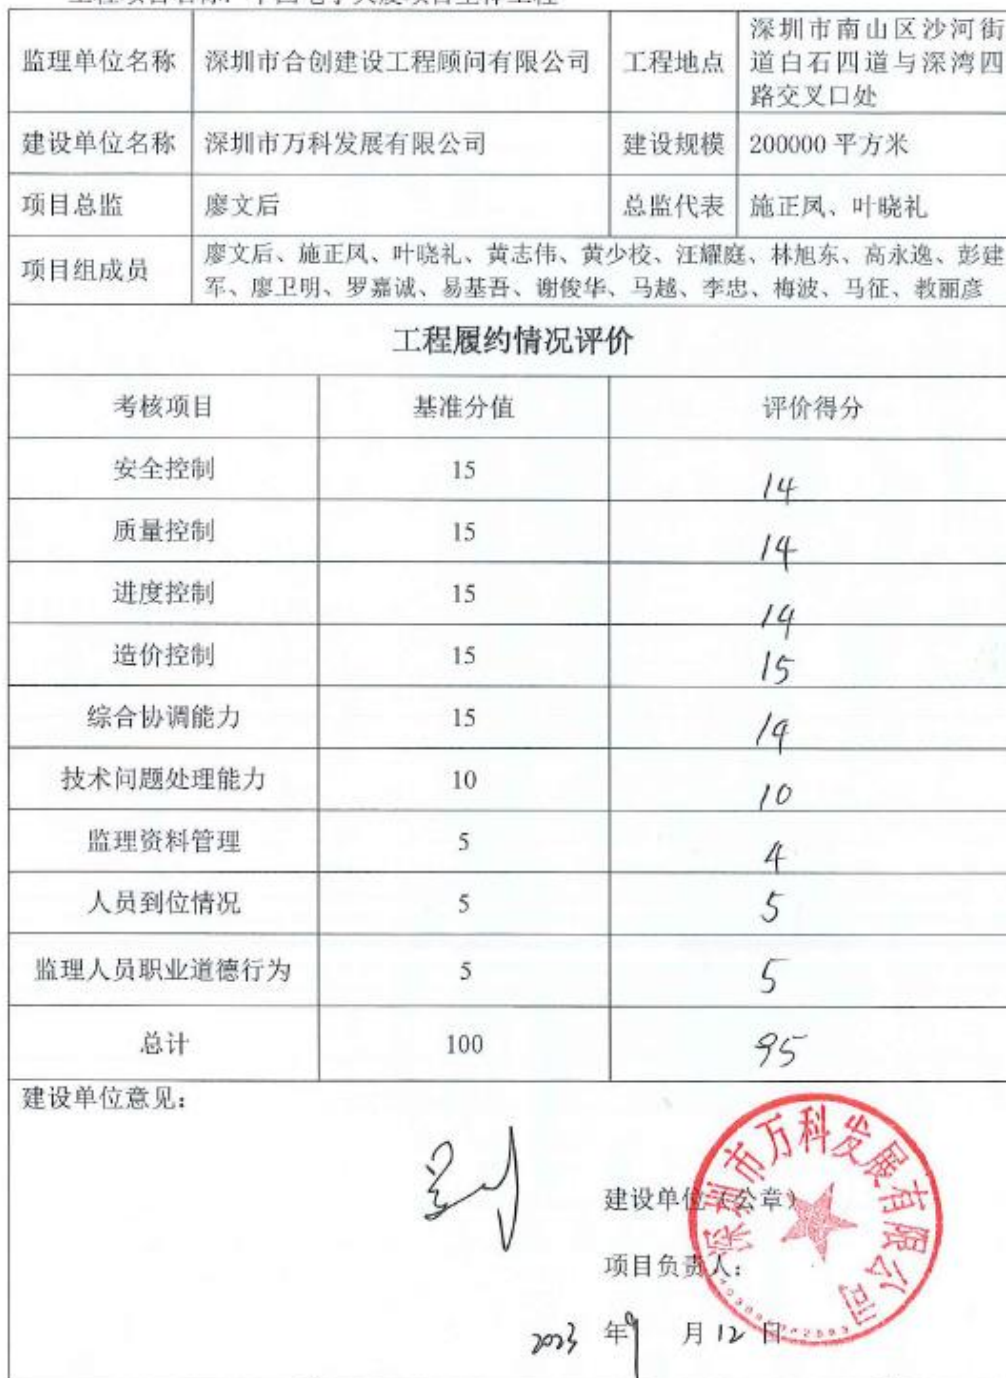 工程项目名称：中国电子大厦项目主体工程
监理单位名称 深圳市合创建设工程顾问有限公司 工程地点 深圳市南山区沙河街
道白石四道与深湾四
路交叉口处
建设单位名称 深圳市万科发展有限公司 建设规模 200000 平方米
项目总监 廖文后 总监代表 施正凤、叶晓礼
项目组成员 廖文后、施正凤、叶晓礼、黄志伟、黄少校、汪耀庭、林旭东、高永逸、彭建
军、廖卫明、罗嘉诚、易基吾、谢俊华、马越、李忠、梅波、马征、教丽彦
工程履约情况评价
考核项目 基准分值 评价得分
安全控制 15 14
质量控制 15 14
进度控制 15 14
造价控制 15 15
综合协调能力 15 14
技术问题处理能力 10 10
监理资料管理 5 4
人员到位情况 5 5
监理人员职业道德行为 5 5
总计 100 95
建设单位意见：
建设单位（公章）
项目负责人：
2023 年 9 月 12 日
深圳市万科发展有限公司